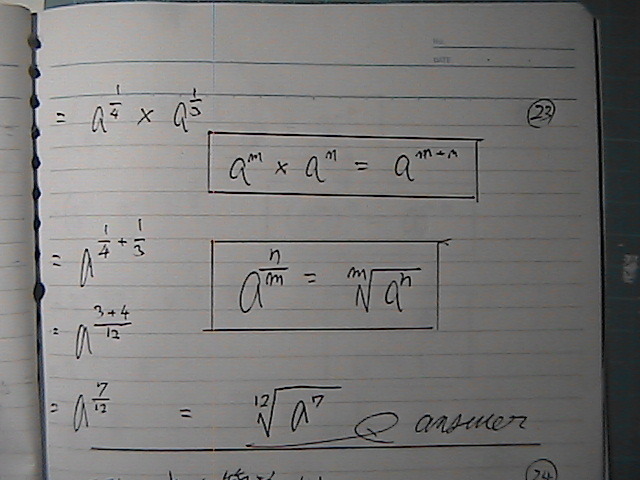 No.
DATE
= a^{1/4} × a^{1/3} (23)
a^m × a^n = a^{m+n}
= a^{1/4 + 1/3}
a^{n/m} = ᵐ√(a^n)
= a^{(3+4)/12}
= a^{7/12} = ¹²√(a^7) answer
(24)